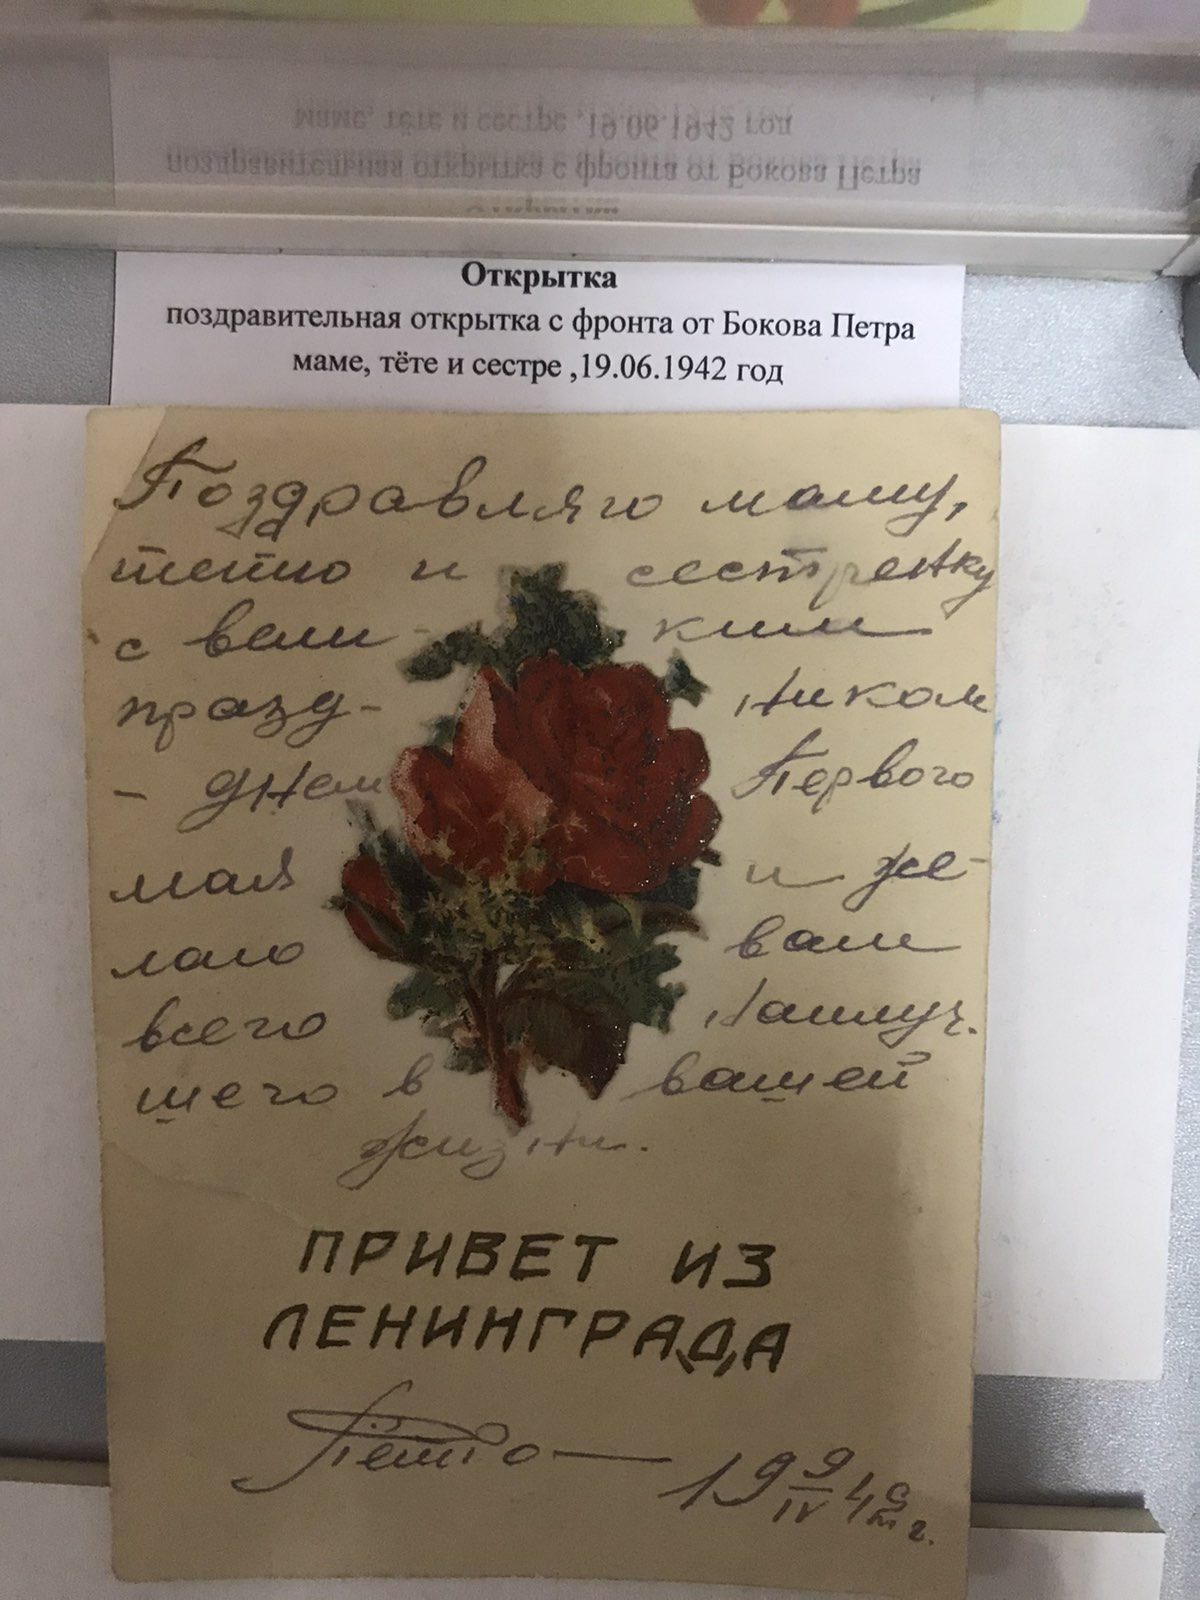 Открытка
поздравительная открытка с фронта от Бокова Петра
маме, тёте и сестре ,19.06.1942 год
Поздравляю маму,
тетю и сестренку
с вели- ким
празд- ником
- днем Первого
мая и же-
лаю вам
всего наилуч.
шего в вашей
жизни.
ПРИВЕТ ИЗ
ЛЕНИНГРАДА
Петро — 19 9/IV